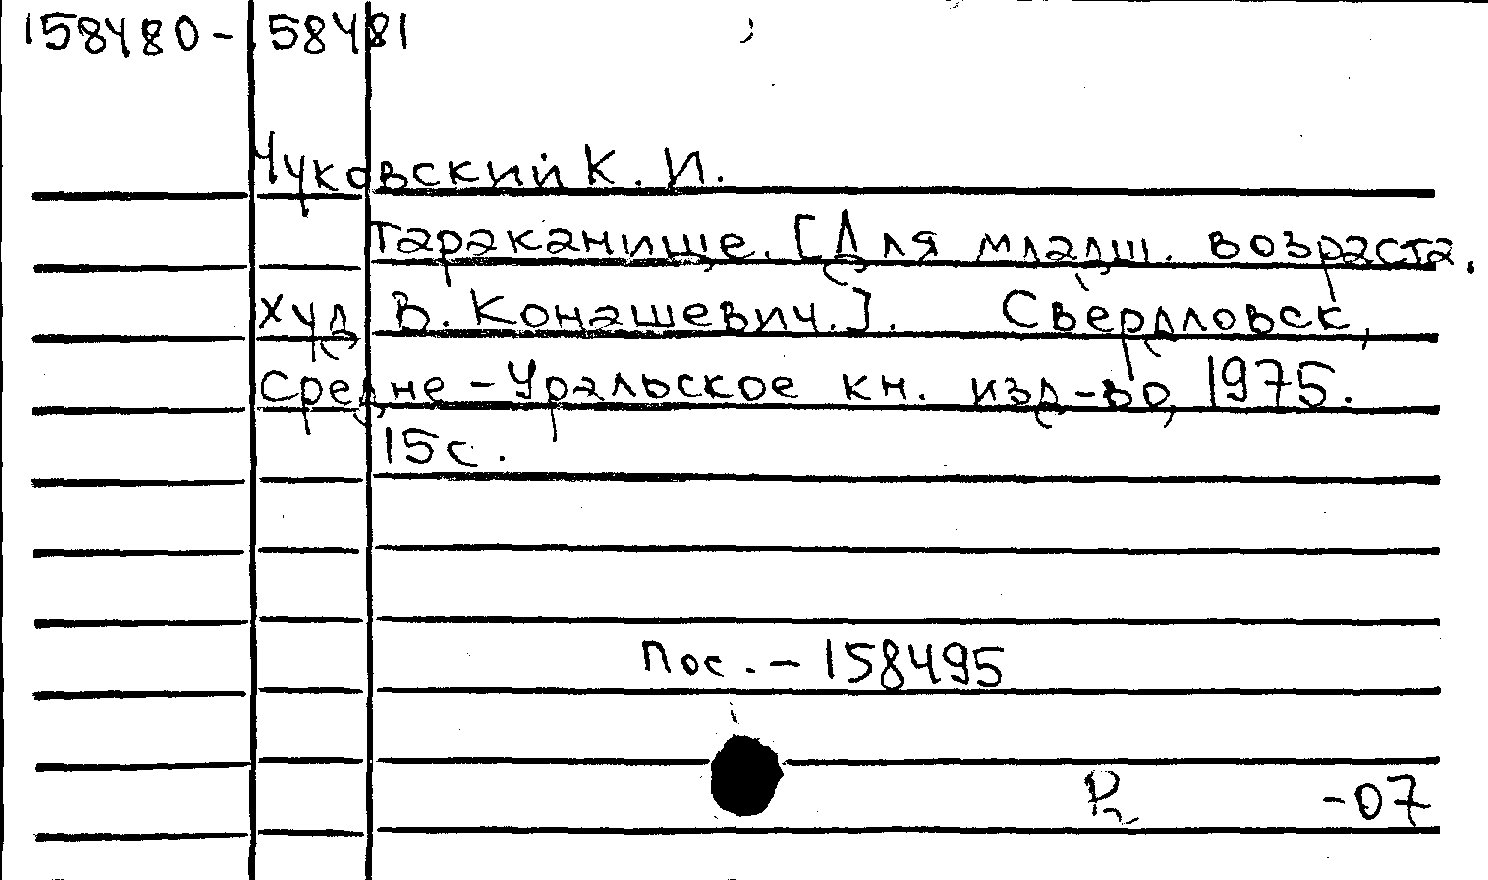 158480-158481
Чуковский К. И.
Тараканище. [Для младш. возраста.
Худ. В. Конашевич.]. Свердловск,
Средне-Уральское кн. изд-во, 1975.
15с.
Пос. - 158495
-07